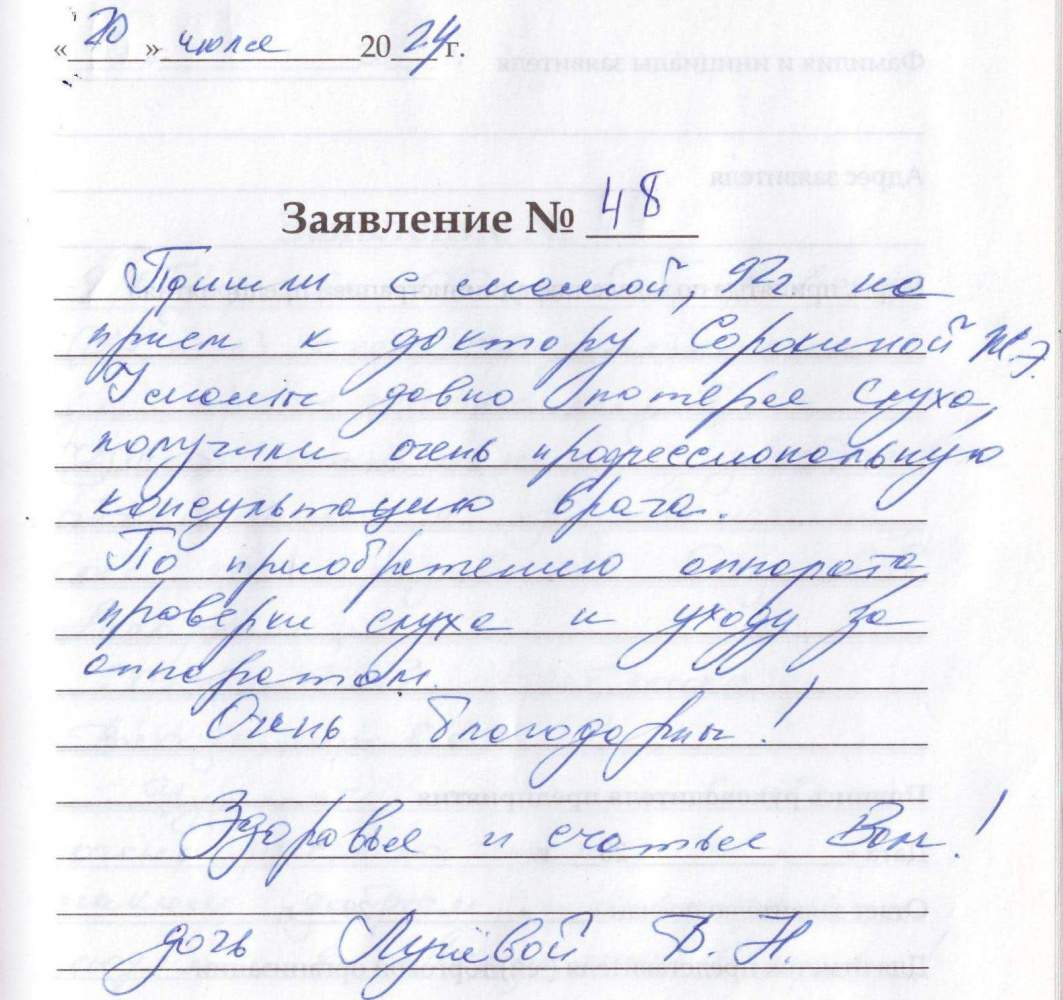 « 20 » июля 2024 г.
Заявление № 48
Пришли с мамой, 92г на
прием к доктору Сорокиной Ж.Э.
У мамы давно потеря слуха,
получили очень профессиональную
консультацию врача.
По приобретению аппарата
проверки слуха и уходу за
аппаратом.
Очень благодарны!
Здоровья и счастья Вам!
дочь Лунёвой Т. Н.